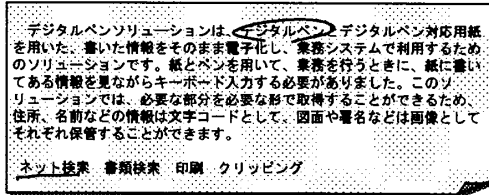 デジタルペンソリューションは、デジタルペンとデジタルペン対応用紙
を用いた、書いた情報をそのまま電子化し、業務システムで利用するため
のソリューションです。紙とペンを用いて、業務を行うときに、紙に書い
てある情報を見ながらキーボード入力する必要がありました。このソ
リューションでは、必要な部分を必要な形で取得することができるため、
住所、名前などの情報は文字コードとして、図面や署名などは画像として
それぞれ保管することができます。
ネット検索 書類検索 印刷 クリッピング